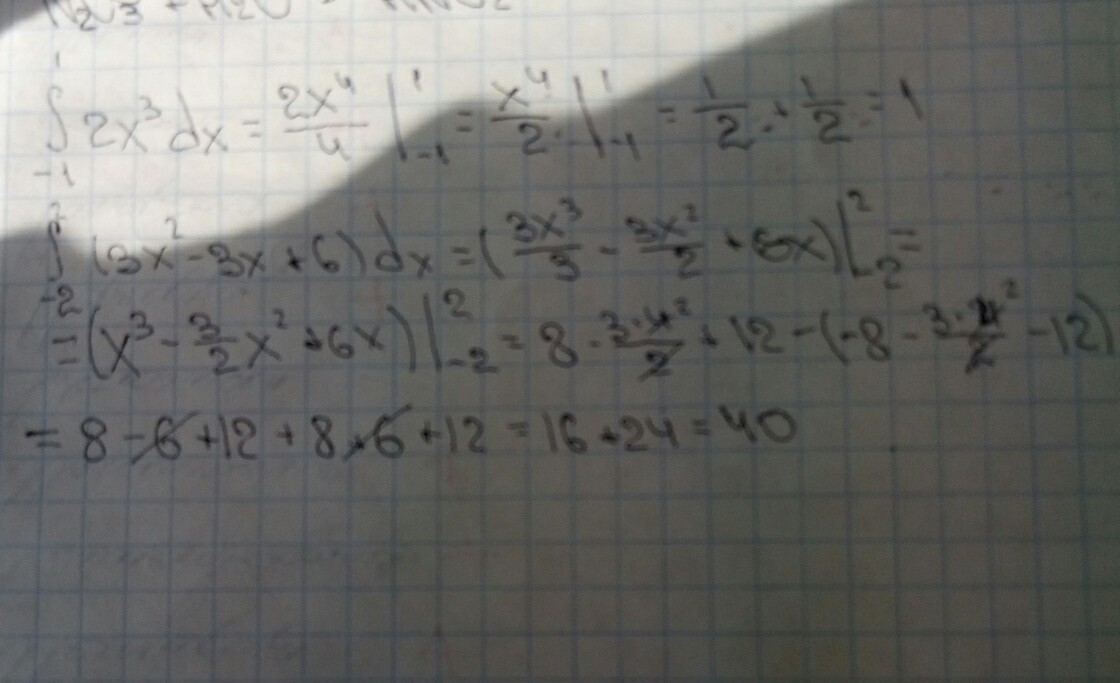 ∫₋₁¹ 2x³ dx = 2x⁴/4 |₋₁¹ = x⁴/2 |₋₁¹ = 1/2 + 1/2 = 1
∫₋₂² (3x² - 3x + 6) dx = (3x³/3 - 3x²/2 + 6x) |₋₂² =
= (x³ - 3/2 x² + 6x) |₋₂² = 8 - 3·4²/2 + 12 - (-8 - 3·4²/2 - 12)
= 8 - 6 + 12 + 8 + 6 + 12 = 16 + 24 = 40